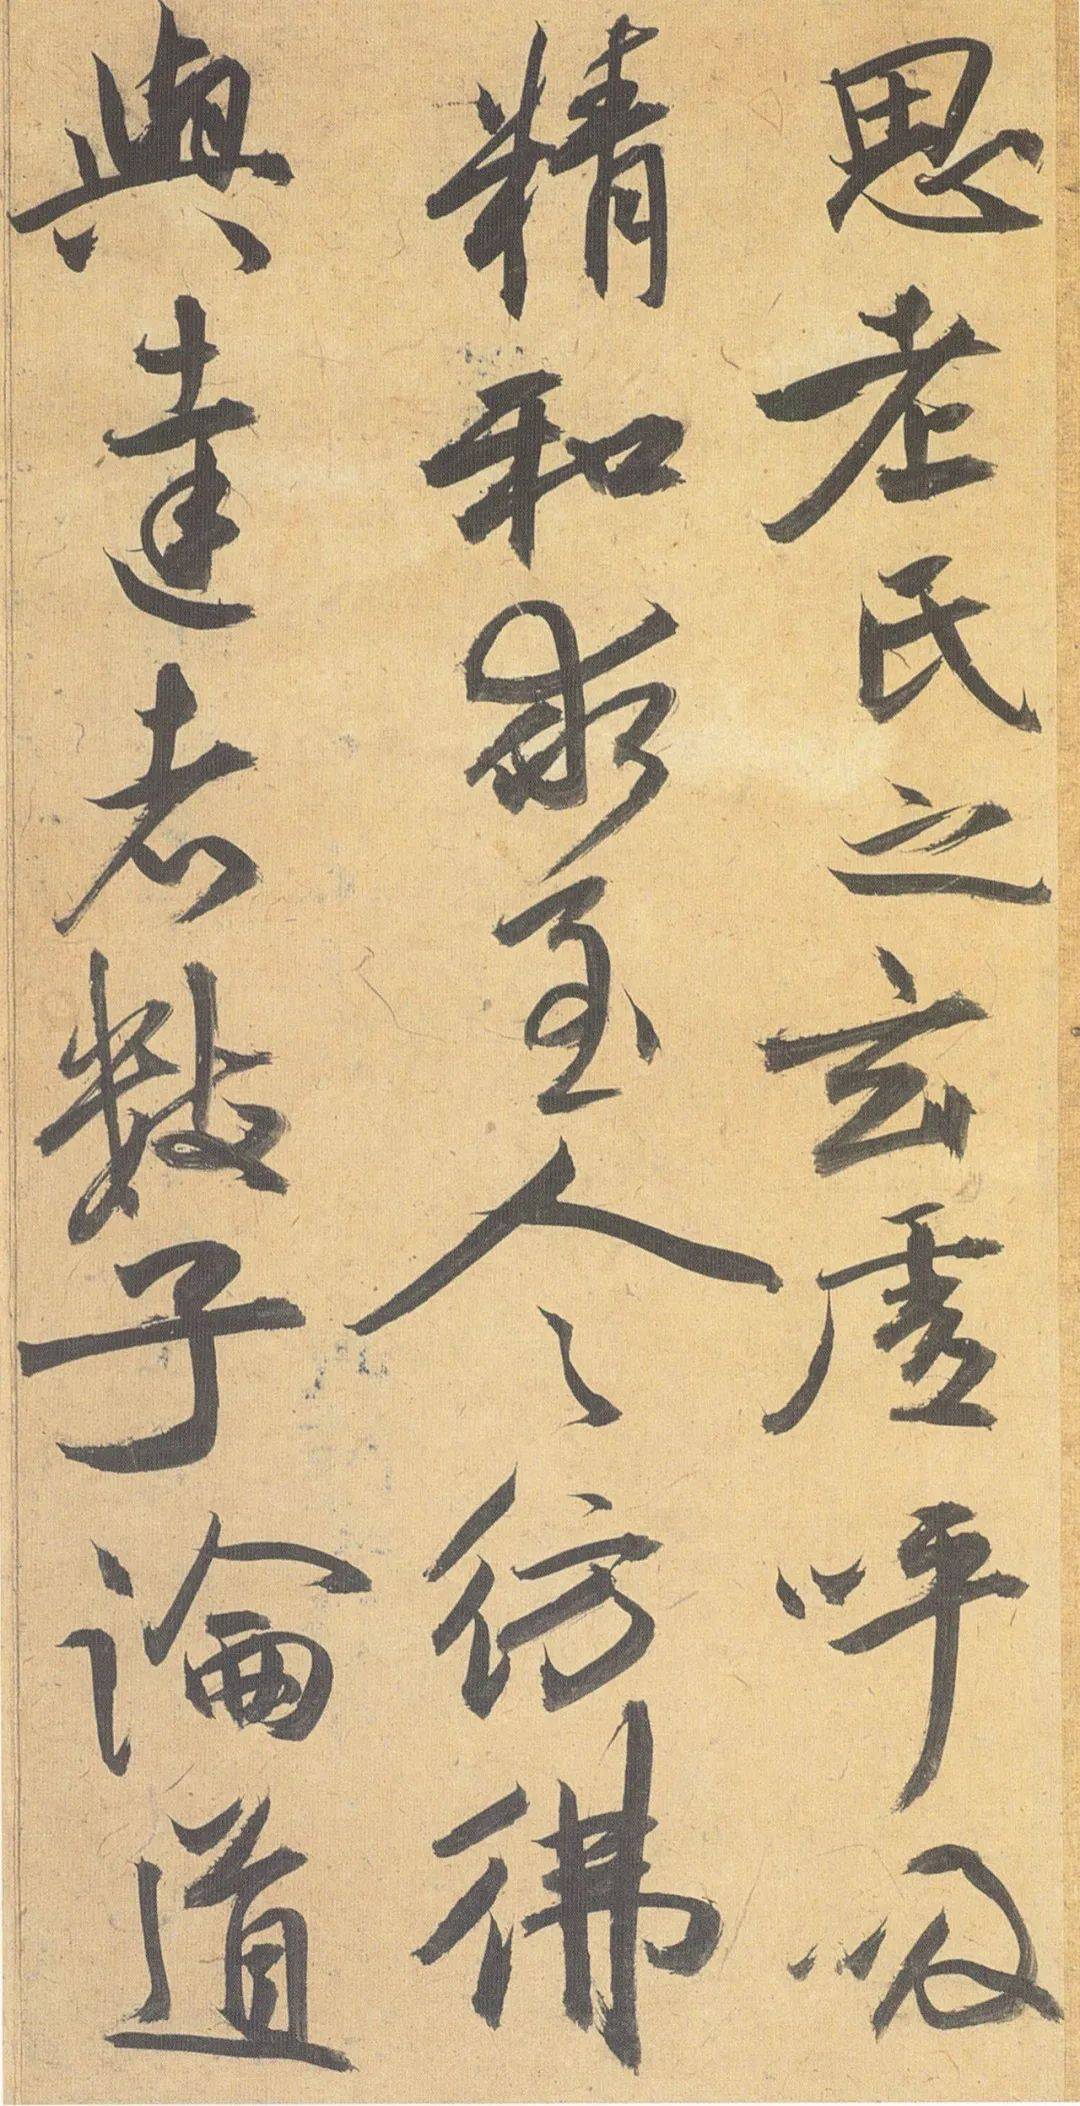 思老氏之玄虛呼吸
精和求至人之仿彿
與達者數子論道